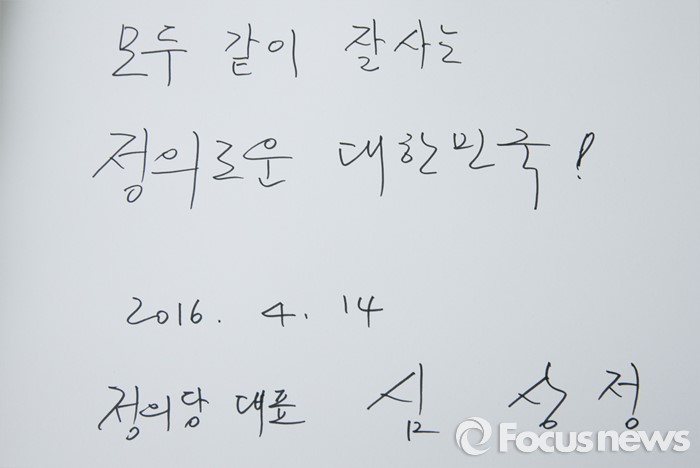 모두 같이 잘사는
정의로운 대한민국!
2016. 4. 14
정의당 대표 심상정
Focusnews